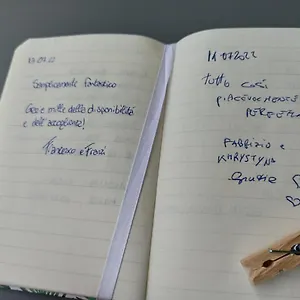 Semplicemente fantastico
Grazie mille della disponibilità
e dell'accoglienza!
Francesco e
11 07 2022
tutto così
piacevolmente
perfetto
FABRIZIO e
KHRYSTYNA
Grazie